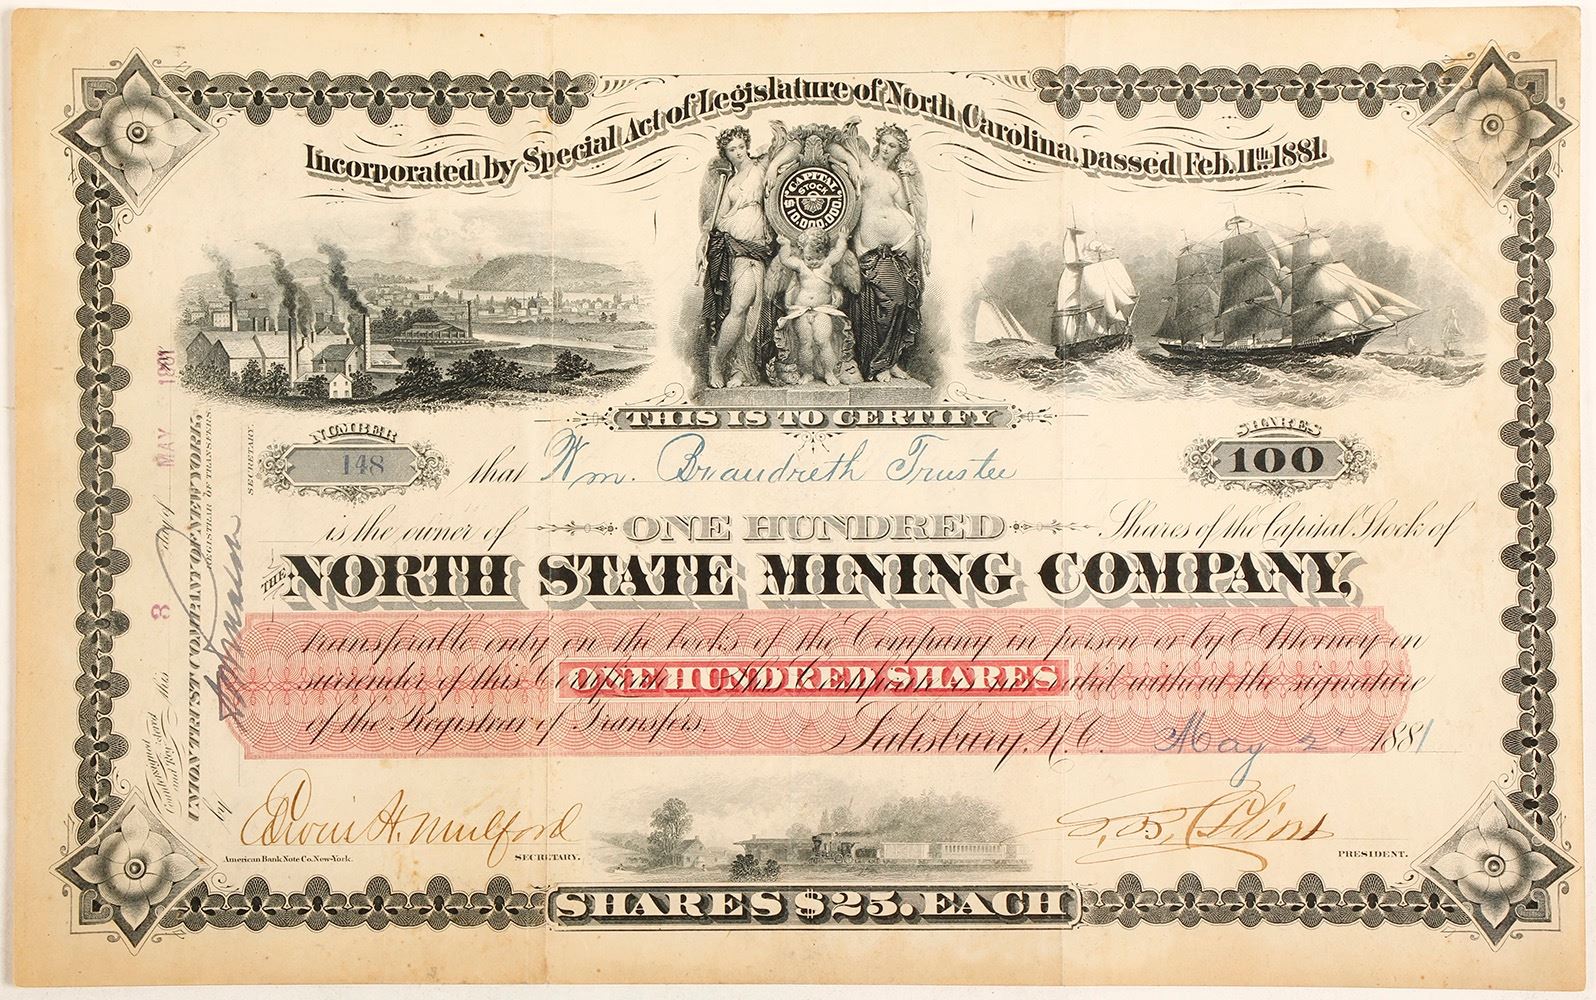 Incorporated by Special Act of Legislature of North Carolina, passed Feb. 11th 1881.
CAPITAL
STOCK
$10,000,000.
THIS IS TO CERTIFY
NUMBER
148
SHARES
100
that Wm. Brandreth Trustee
is the owner of ONE HUNDRED Shares of the Capital Stock of
THE NORTH STATE MINING COMPANY,
transferable only on the books of the Company in person or by Attorney on
surrender of this Certificate. This Certificate is not valid without the signature
of the Registrar of Transfers.
ONE HUNDRED SHARES
Salisbury, N.C. May 2d 1881
Edwin H. Mulford
SECRETARY.
PRESIDENT.
American Bank Note Co. New-York.
SHARES $25. EACH
Countersigned
and Registered this 3 day of MAY 1881
UNION TRUST COMPANY OF NEW YORK
REGISTRAR OF TRANSFERS.
by
SECRETARY.